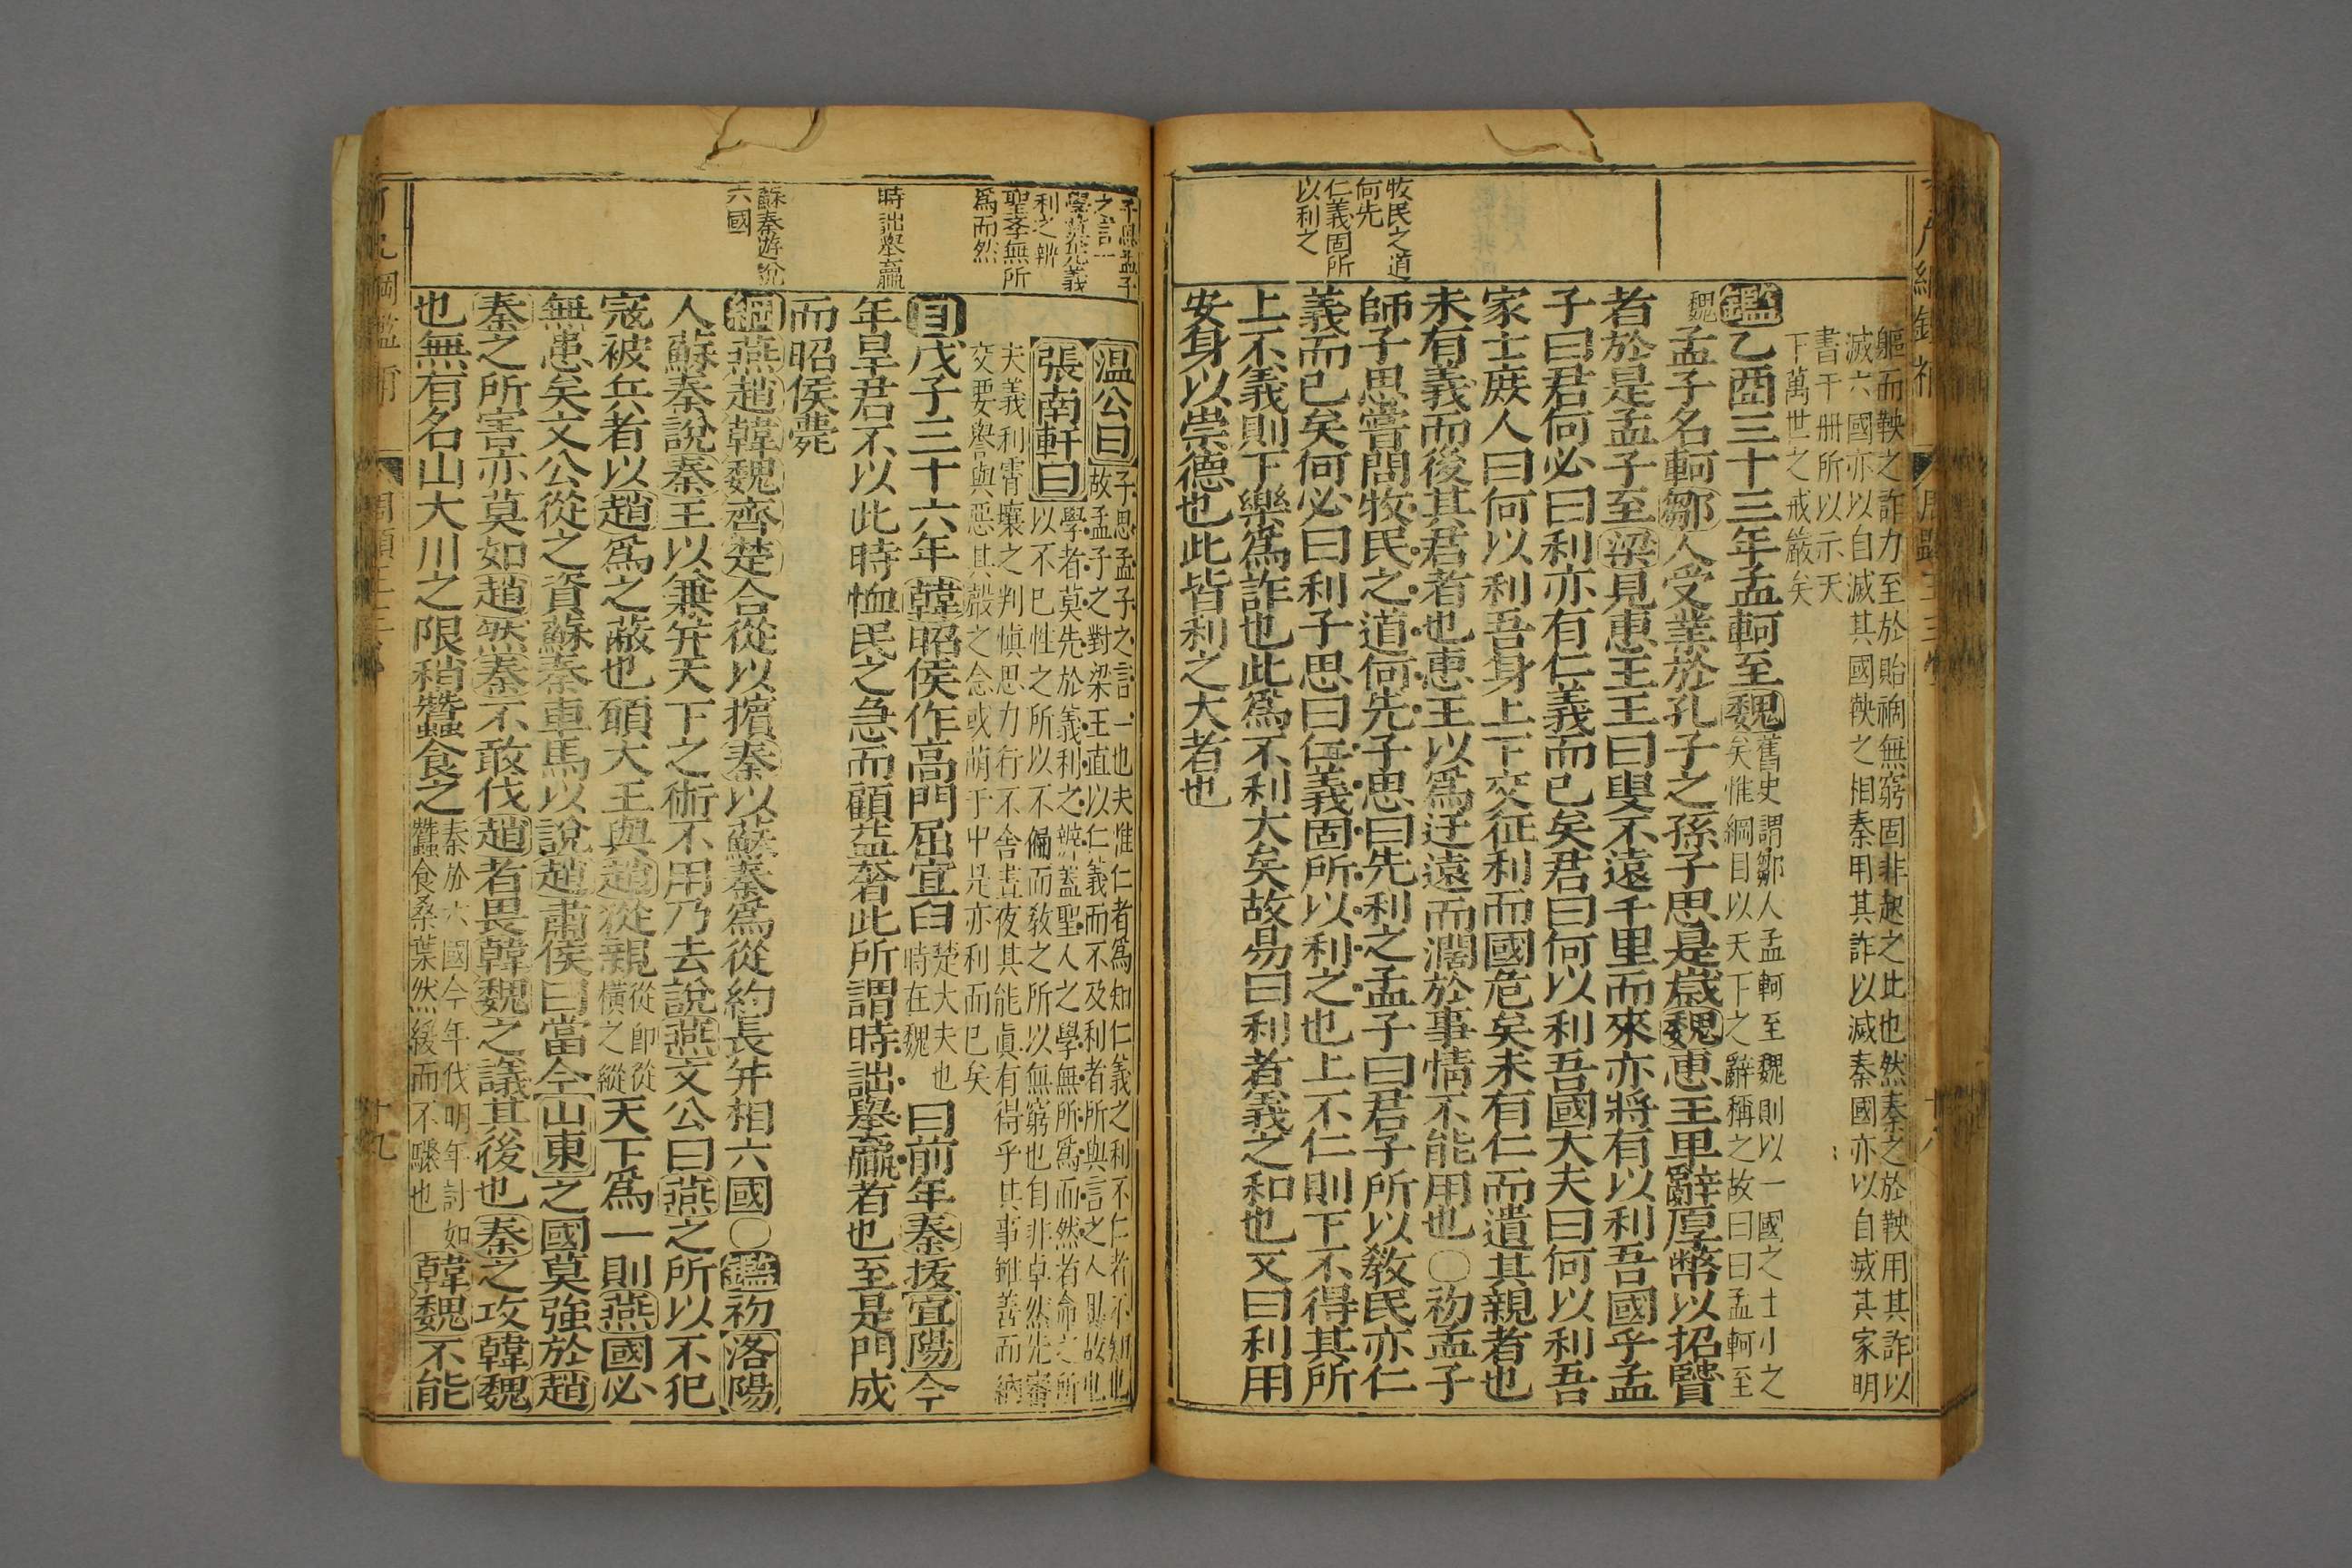 軀而鞅之詐力至於貽禍無窮固非赦之比也然秦之於鞅用其詐以
滅六國亦以自滅其國鞅之相秦用其詐以滅秦國亦以自滅其家明
書于冊所以示天
下萬世之戒嚴矣
鑑乙酉三十三年孟軻至魏
舊史謂鄒人孟軻至魏則以一國之士小之
矣惟綱目以天下之辭稱之故曰曰孟軻至
魏
孟子名軻鄒人受業於孔子之孫子思是歲魏惠王卑辭厚幣以招賢
者於是孟子至梁見惠王王曰叟不遠千里而來亦將有以利吾國乎孟
子曰君何必曰利亦有仁義而已矣君曰何以利吾國大夫曰何以利吾
家士庻人曰何以利吾身上下交征利而國危矣未有仁而遺其親者也
未有義而後其君者也惠王以爲迂遠而濶於事情不能用也〇初孟子
師子思嘗問牧民之道何先子思曰先利之孟子曰君子所以敎民亦仁
義而已矣何必曰利子思曰仁義固所以利之也上不仁則下不得其所
上不義則下樂爲詐也此爲不利大矣故易曰利者義之和也又曰利用
安身以崇德也此皆利之大者也
牧民之道
何先
仁義固所
以利之
十八
子思孟子
之言一
學莫先義
利之辨
聖學無所
爲而然
時詘舉贏
蘇秦遊說
六國
溫公曰
子思孟子之言一也夫惟仁者爲知仁義之利不仁者不知也
故孟子之對梁王直以仁義而不及利者所與言之人異故也
張南軒曰
學者莫先於義利之辨蓋聖人之學無所爲而然者命之所
以不已性之所以不偏而敎之所以無窮也自非卓然先審
夫義利霄壤之判愼思力行不舍晝夜其能眞有得乎其事雖善而納
交要譽與惡其聲之念或萌于中是亦利而已矣
目戊子三十六年韓昭侯作高門屈宜臼
楚大夫也
時在魏
曰前年秦拔宜陽今
年旱君不以此時恤民之急而顧益奢此所謂時詘舉贏者也至是門成
而昭侯薨
綱燕趙韓魏齊楚合從以擯秦以蘇秦爲從約長并相六國〇鑑初洛陽
人蘇秦說秦王以兼并天下之術不用乃去說燕文公曰燕之所以不犯
寇被兵者以趙爲之蔽也願大王與趙從親
從卽從
橫之縱
天下爲一則燕國必
無患矣文公從之資蘇秦車馬以說趙肅侯曰當今山東之國莫強於趙
秦之所害亦莫如趙然秦不敢伐趙者畏韓魏之議其後也秦之攻韓魏
也無有名山大川之限稍蠶食之
秦於六國今年伐明年討如
蠶食桑葉然緩而不驟也
韓魏不能
十九